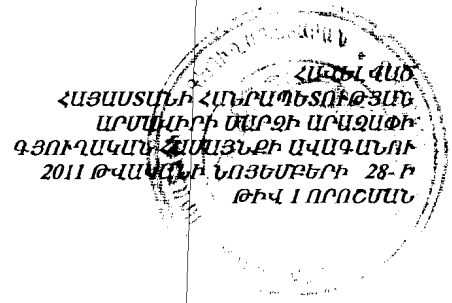 ՀԱՎԵԼՎԱԾ
ՀԱՅԱՍՏԱՆԻ ՀԱՆՐԱՊԵՏՈՒԹՅԱՆ
ԱՐՄԱՎԻՐԻ ՄԱՐԶԻ ԱՐԱԶԱՓԻ
ԳՅՈՒՂԱԿԱՆ ՀԱՄԱՅՆՔԻ ԱՎԱԳԱՆՈՒ
2011 ԹՎԱԿԱՆԻ ՆՈՅԵՄԲԵՐԻ 28- Ի
ԹԻՎ 1 ՈՐՈՇՄԱՆ